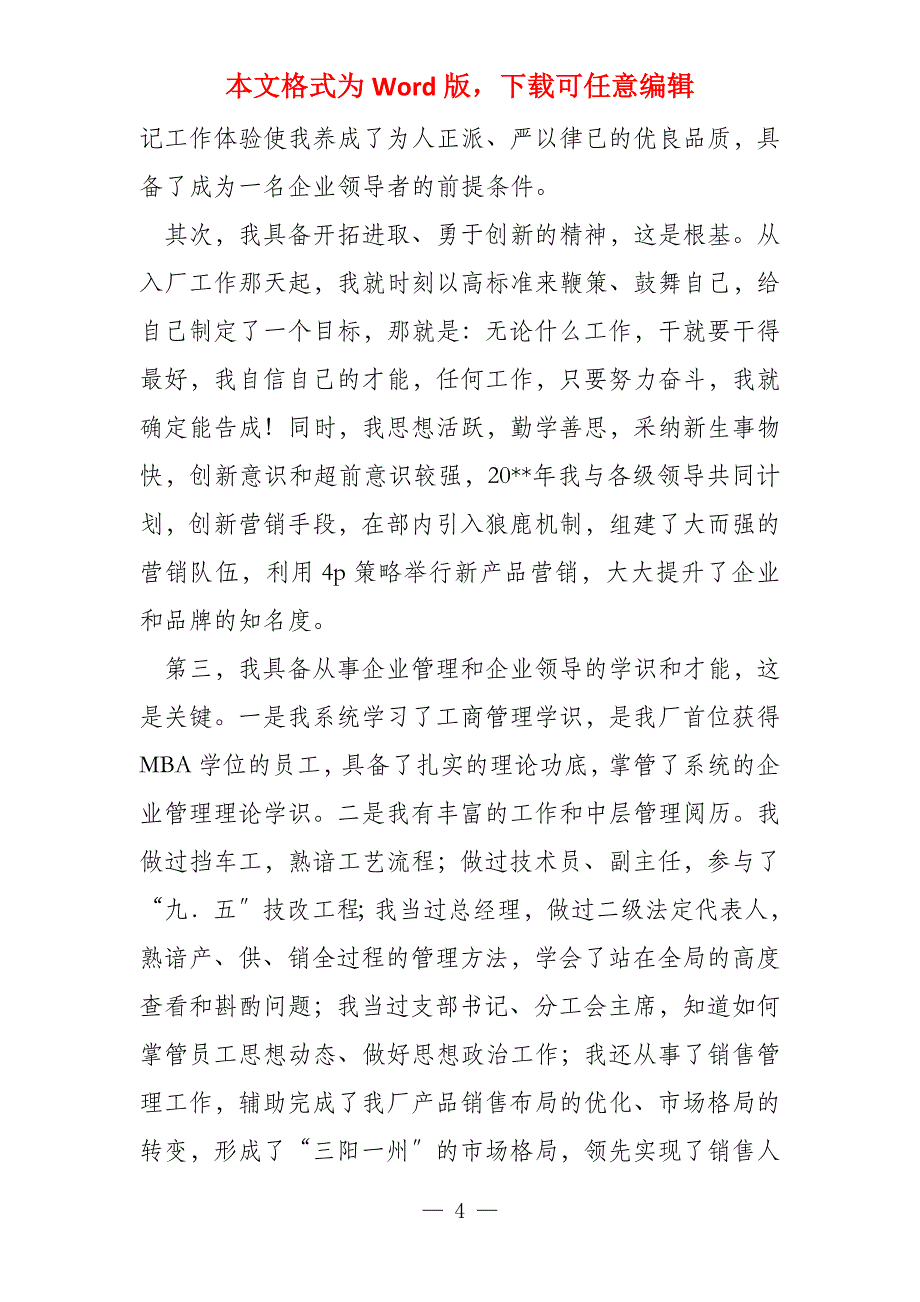 本文格式为 Word 版，下载可任意编辑
记工作体验使我养成了为人正派、严以律已的优良品质，具
备了成为一名企业领导者的前提条件。
其次，我具备开拓进取、勇于创新的精神，这是根基。从
入厂工作那天起，我就时刻以高标准来鞭策、鼓舞自己，给
自己制定了一个目标，那就是：无论什么工作，干就要干得
最好，我自信自己的才能，任何工作，只要努力奋斗，我就
确定能告成！同时，我思想活跃，勤学善思，采纳新生事物
快，创新意识和超前意识较强，20**年我与各级领导共同计
划，创新营销手段，在部内引入狼鹿机制，组建了大而强的
营销队伍，利用 4p 策略举行新产品营销，大大提升了企业
和品牌的知名度。
第三，我具备从事企业管理和企业领导的学识和才能，这
是关键。一是我系统学习了工商管理学识，是我厂首位获得
MBA 学位的员工，具备了扎实的理论功底，掌管了系统的企
业管理理论学识。二是我有丰富的工作和中层管理阅历。我
做过挡车工，熟谙工艺流程；做过技术员、副主任，参与了
“九．五〞技改工程；我当过总经理，做过二级法定代表人，
熟谙产、供、销全过程的管理方法，学会了站在全局的高度
查看和斟酌问题；我当过支部书记、分工会主席，知道如何
掌管员工思想动态、做好思想政治工作；我还从事了销售管
理工作，辅助完成了我厂产品销售布局的优化、市场格局的
转变，形成了“三阳一州〞的市场格局，领先实现了销售人
— 4 —